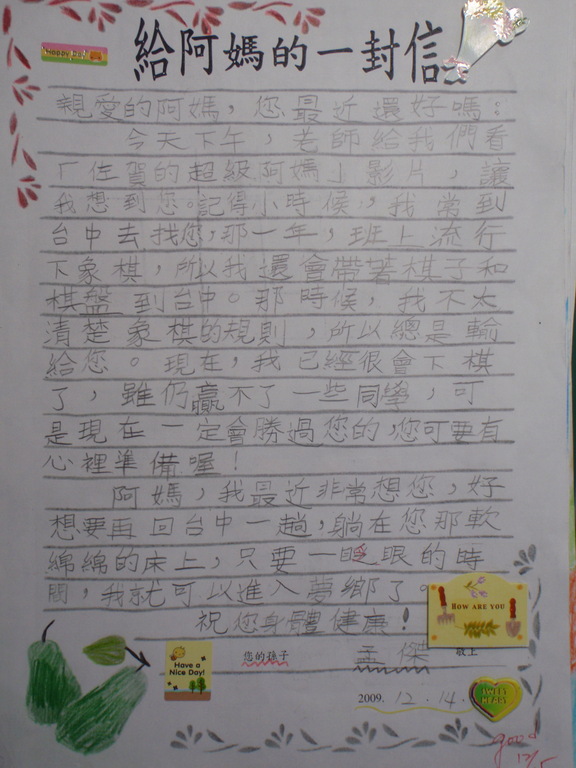 Happy
給阿媽的一封信
親愛的阿媽，您最近還好嗎：
今天下午，老師給我們看
「佐賀的超級阿媽」影片，讓
我想到您。記得小時候，我常到
台中去找您，那一年，班上流行
下象棋，所以我還會帶著棋子和
棋盤到台中。那時候，我不太
清楚象棋的規則，所以總是輸
給您。現在，我已經很會下棋
了，雖仍贏不了一些同學，可
是現在一定會勝過您的，您可要有
心裡準備喔！
阿媽，我最近非常想您，好
想要再回台中一趟，躺在您那軟
綿綿的床上，只要一眨眼的時
間，我就可以進入夢鄉了。
祝您身體健康！
HOW ARE YOU
Have a
Nice Day!
您的孫子 孟傑 敬上
2009. 12. 14.
SWEET
HEART
good